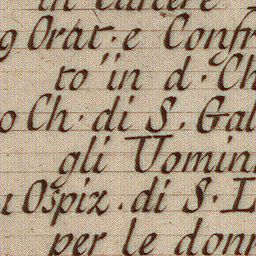 in Cantere
g Orat. e Confr
to in d. Ch
o Ch. di S. Gal
gli Uomini
Ospiz. di S. L
per le donn